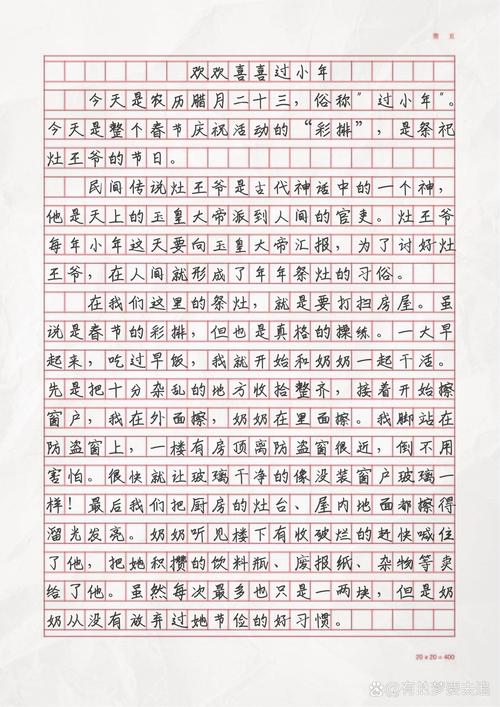 欢欢喜喜过小年
今天是农历腊月二十三，俗称“过小年”。
今天是整个春节庆祝活动的“彩排”，是祭祀
灶王爷的节日。
民间传说灶王爷是古代神话中的一个神，
他是天上的玉皇大帝派到人间的官吏。灶王爷
每年小年这天要向玉皇大帝汇报，为了讨好灶
王爷，在人间就形成了年年祭灶的习俗。
在我们这里的祭灶，就是要打扫房屋。虽
说是春节的彩排，但也是真格的操练。一大早
起来，吃过早饭，我就开始和奶奶一起干活。
先是把十分杂乱的地方收拾整齐，接着开始擦
窗户，我在外面擦，奶奶在里面擦。我脚站在
防盗窗上，一楼有房顶离防盗窗很近，倒不用
害怕。很快就让玻璃干净的像没装窗户玻璃一
样！最后我们把厨房的灶台、屋内地面都擦得
溜光发亮。奶奶听见楼下有收破烂的赶快喊住
了他，把她积攒的饮料瓶、废报纸、杂物等卖
给了他。虽然每次最多也只是一两块，但是奶
奶从没有放弃过她节俭的好习惯。
20 x 20 = 400